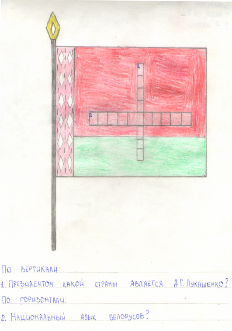 По вертикали:
1. Президентом какой страны является А.Г. Лукашенко?
По горизонтали:
2. Национальный язык белорусов?